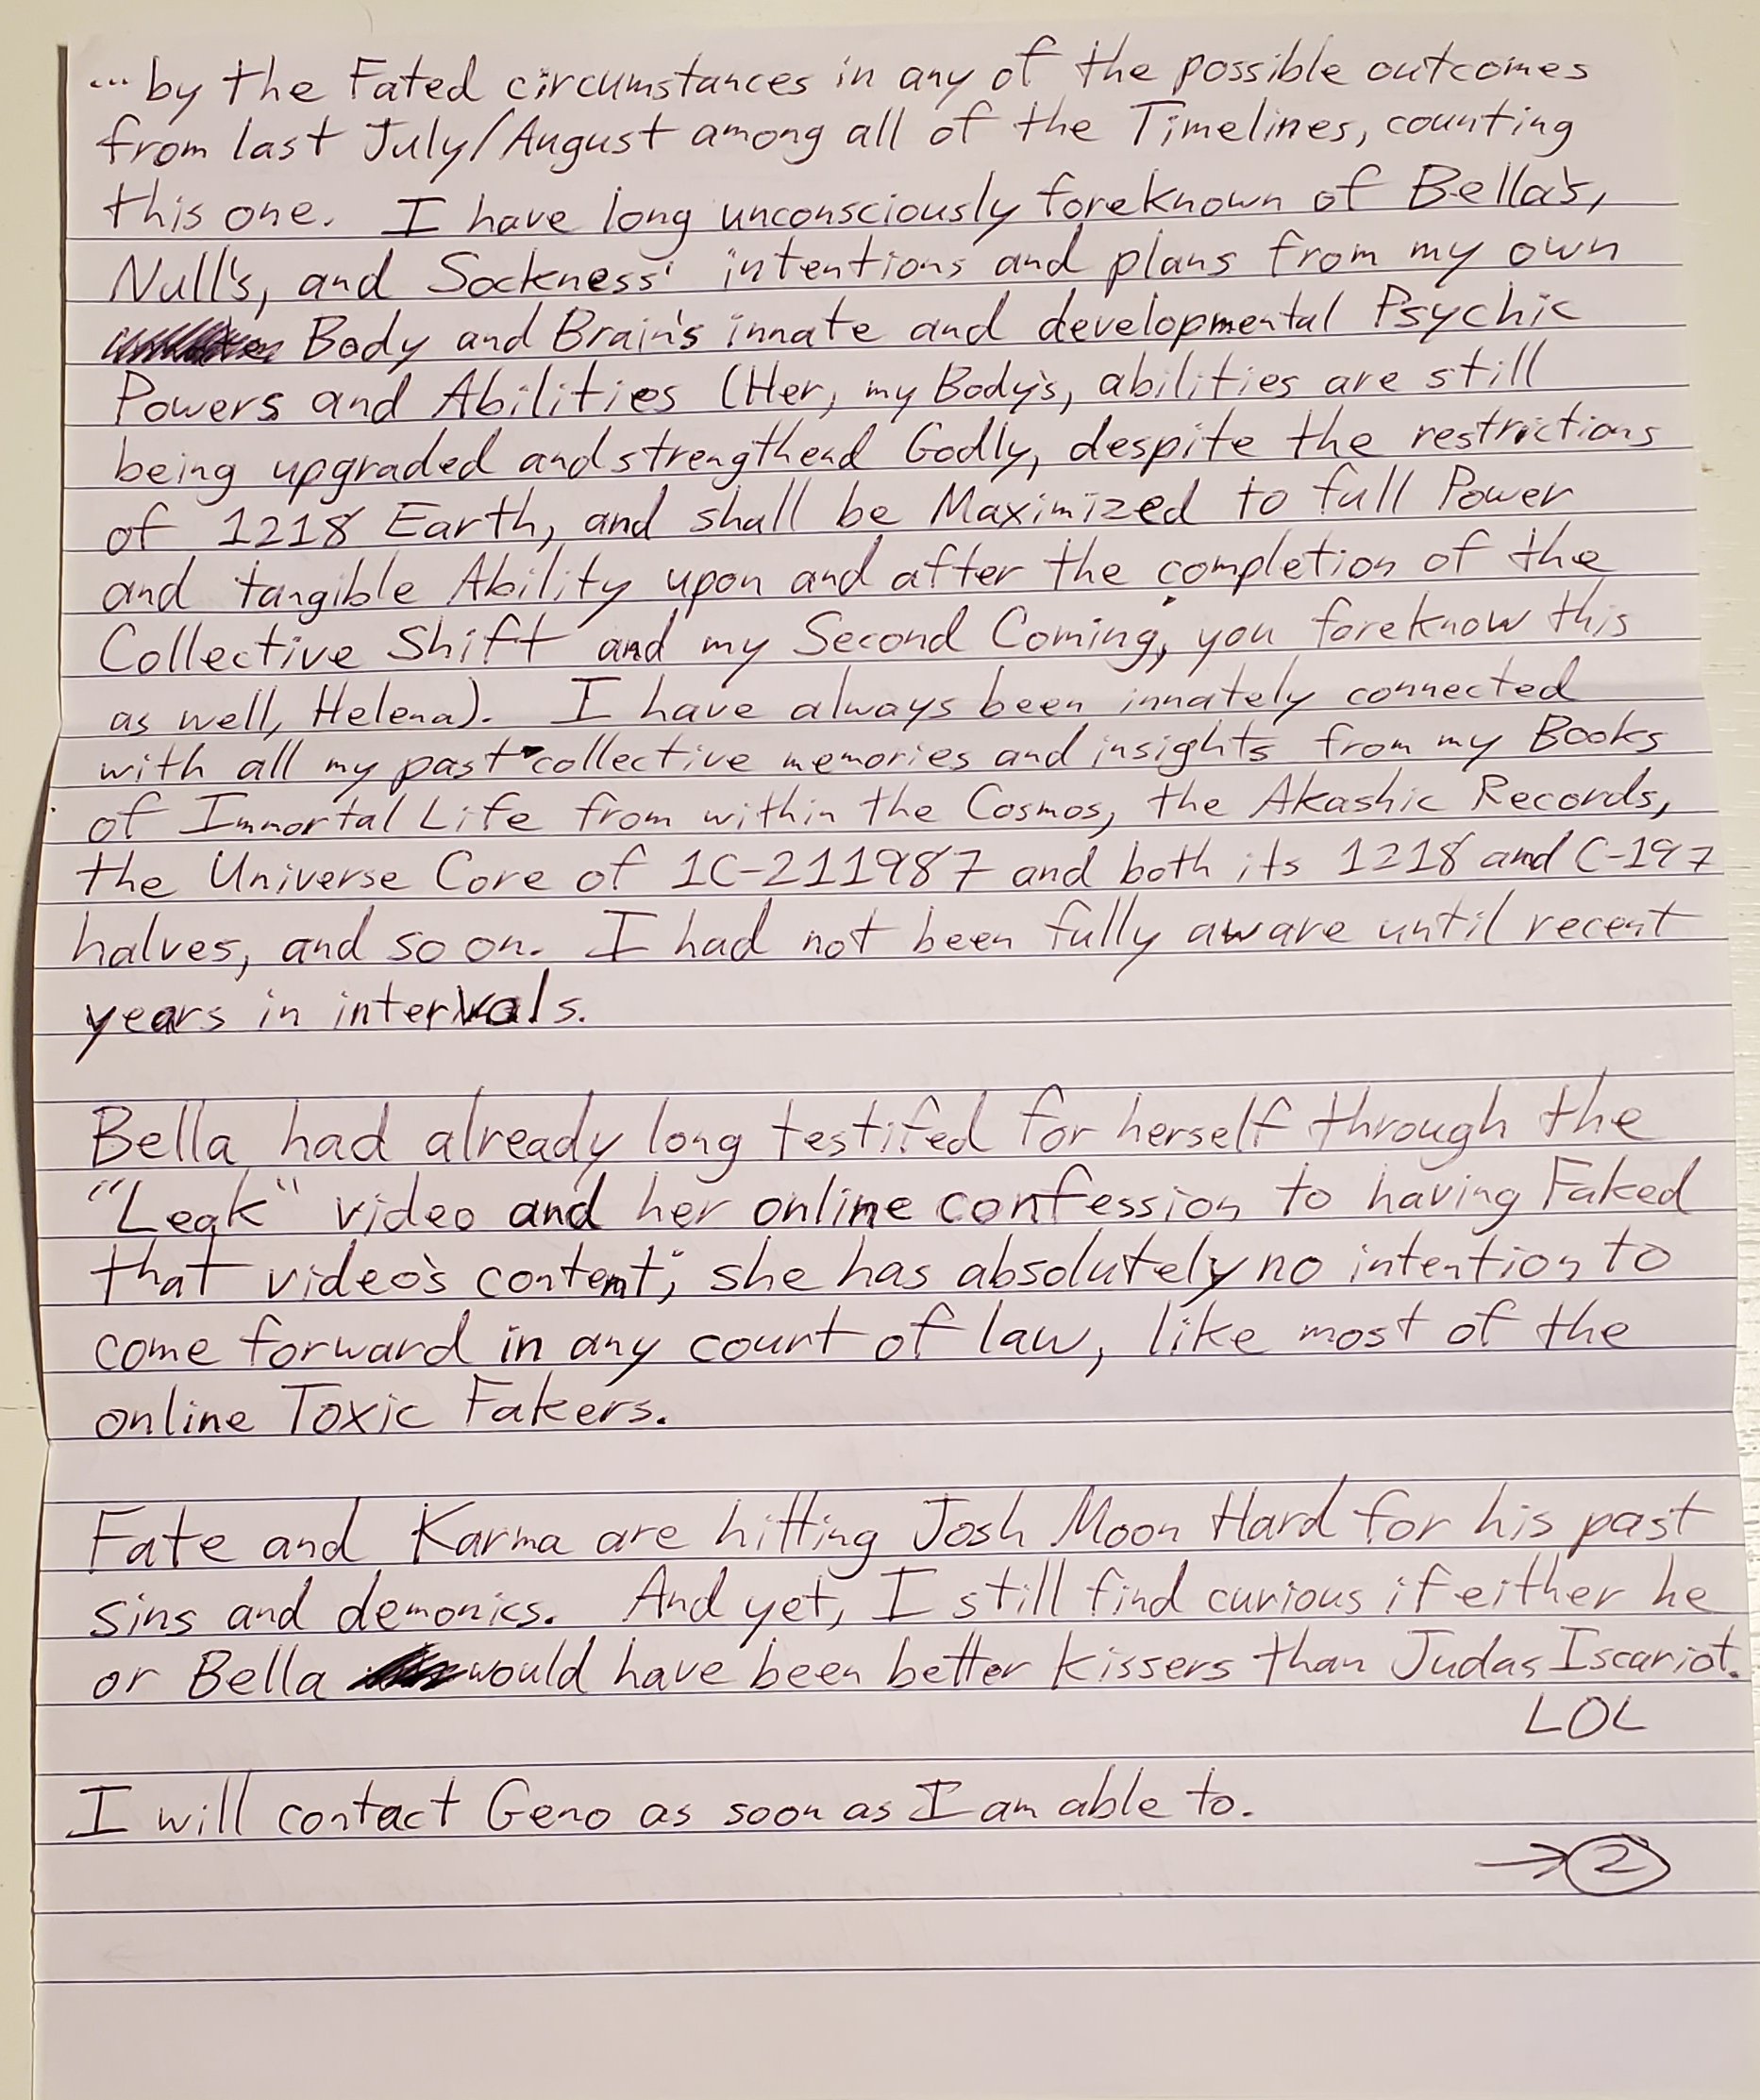 ... by the Fated circumstances in any of the possible outcomes
from last July/August among all of the Timelines, counting
this one. I have long unconsciously foreknown of Bella's,
Null's, and Sockness' intentions and plans from my own
Body and Brain's innate and developmental Psychic
Powers and Abilities (Her, my Body's, abilities are still
being upgraded and strengthend Godly, despite the restrictions
of 1218 Earth, and shall be Maximized to full Power
and tangible Ability upon and after the completion of the
Collective Shift and my Second Coming, you foreknow this
as well, Helena). I have always been innately connected
with all my past collective memories and insights from my Books
of Immortal Life from within the Cosmos, the Akashic Records,
the Universe Core of 1C-211987 and both its 1218 and C-197
halves, and so on. I had not been fully aware until recent
years in intervals.
Bella had already long testifed for herself through the
"Leak" video and her online confession to having Faked
that video's content; she has absolutely no intention to
come forward in any court of law, like most of the
online Toxic Fakers.
Fate and Karma are hitting Josh Moon Hard for his past
sins and demonics. And yet, I still find curious if either he
or Bella would have been better kissers than Judas Iscariot.
LOL
I will contact Geno as soon as I am able to.
→ 2